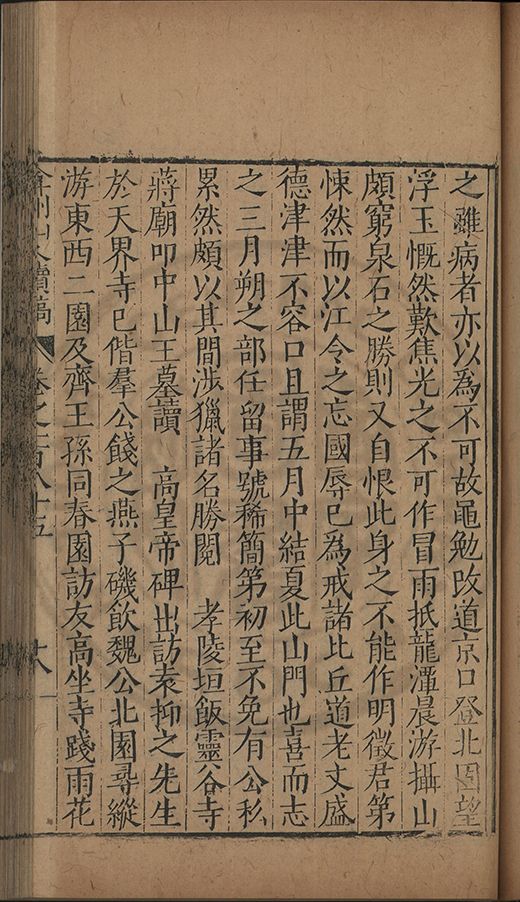 之雖病者亦以為不可故黽勉改道京口登北固望
浮玉慨然歎焦光之不可作冒雨抵龍潭晨游攝山
頗窮泉石之勝則又自恨此身之不能作明徵君第
悚然而以江令之忘國辱已為戒諸比丘道老丈盛
德津津不容口且謂五月中結夏此山門也喜而志
之三月朔之部任留事號稀簡第初至不免有公私
累然頗以其間涉獵諸名勝閱　孝陵垣飯靈谷寺
蔣廟叩中山王墓讀　高皇帝碑出訪袁抑之先生
於天界寺已偕羣公餞之燕子磯飲魏公北園尋縱
游東西二園及齊王孫同春園訪友高坐寺踐雨花
弇州山人續稿
卷之一百八十五
十八